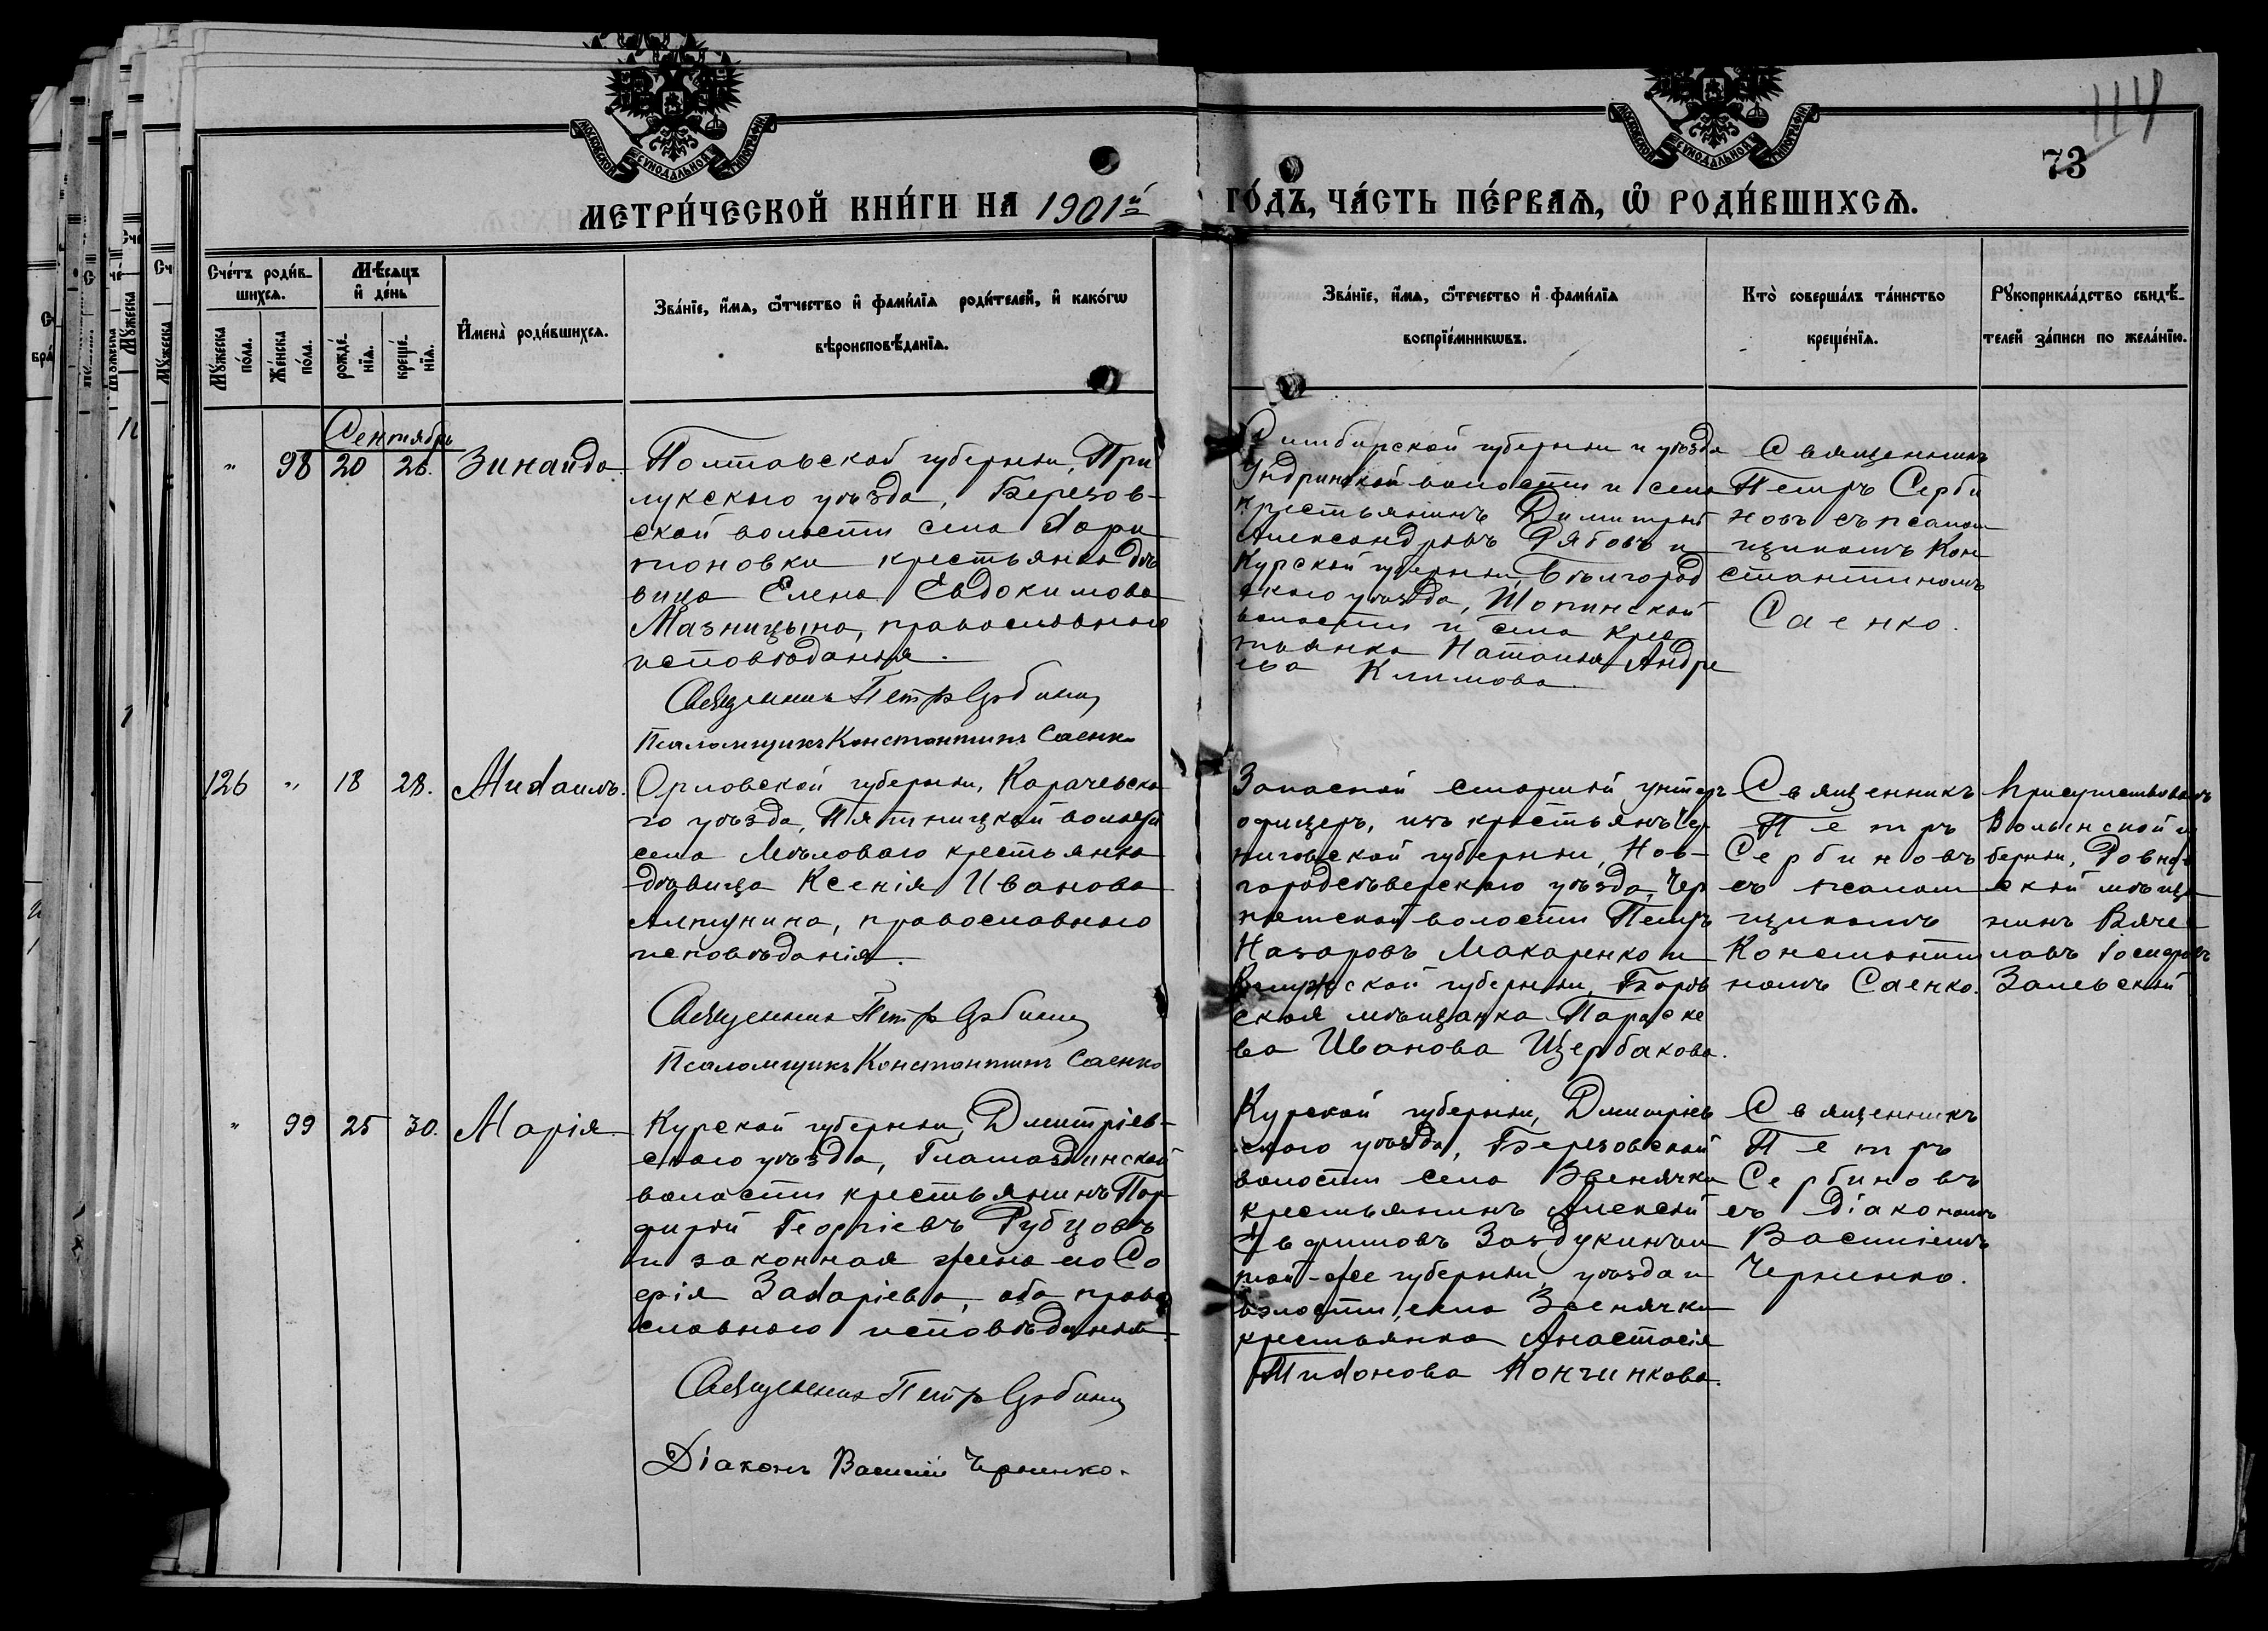 МОСКОВСКОЙ СѴНОДАЛЬНОЙ ТИПОГРАФІИ
МОСКОВСКОЙ СѴНОДАЛЬНОЙ ТИПОГРАФІИ
114
73
МЕТРИ́ЧЕСКОЙ КНИ́ГИ НА 1901й
ГО́ДЪ, ЧА́СТЬ ПЕ́РВАѦ, Ѡ҆ РОДИ́ВШИХСѦ.
Сче́тъ роди́в-
шихсѧ.
Мꙋ́жеска
по́ла.
Же́нска
по́ла.
Мѣ́сѧцъ
и҆ де́нь
рожде́-
нїѧ.
креще́-
нїѧ.
И҆мена̀ роди́вшихсѧ.
Зва́нїе, и҆́мѧ, ѻ҆́тчество и҆ фами́лїѧ роди́телей, и҆ како́гѡ
вѣроисповѣ́данїѧ.
Зва́нїе, и҆́мѧ, ѻ҆́течество и҆ фами́лїѧ
воспрїе́мникѡвъ.
Кто̀ соверша́лъ та́инство
креще́нїѧ.
Рꙋкоприкла́дство свидѣ́-
телей за́писи по жела́нїю.
Сентябрь
" 98 20 26. Зинаида
Полтавской губерніи, При
лукскаго уѣзда, Березов-
ской волости села Хари
тоновки крестьянка дѣ
вица Елена Евдокимова
Мазницына, православнаго
исповѣданія.
Священникъ Петръ Сербиновъ
Псаломщикъ Константинъ Саенко
Симбирской губерніи и уѣзда
Ундринской волости и села
крестьянинъ Димитрій
Александровъ Рябовъ и
Курской губерніи, Бѣлгород
скаго уѣзда, Шопинской
волости и села крес
тьянка Наталія Андре
ева Климова.
Священникъ
Петръ Серби
новъ съ псалом
щикомъ Кон
стантиномъ
Саенко.
126 " 18 28. Михаилъ.
Орловской губерніи, Карачевска
го уѣзда, Пятницкой волости
села Мѣловаго крестьянка
дѣвица Ксенія Иванова
Алтунина, православнаго
исповѣданія.
Священникъ Петръ Сербиновъ
Псаломщикъ Константинъ Саенко
Запасной старшій унтеръ
офицеръ, изъ крестьянъ Чер
ниговской губерніи, Нов-
городсѣверскаго уѣзда,
волости Петръ
Назаровъ Макаренко и
Калужской губерніи, Боров
ская мѣщанка Параске
ва Иванова Щербакова.
Священникъ
Петръ
Сербиновъ
съ псалом
щикомъ
Константи
номъ Саенко.
Присутствовалъ
Волынской гу
берніи, Ровен
скій мѣща
нинъ Вяче
славъ
Залевскій
" 99 25 30. Марія.
Курской губерніи, Дмитріев-
скаго уѣзда, Гламаздинской
волости крестьянинъ Пор-
фирій Георгіевъ Рубцовъ
и законная жена его Со
фія Захаріева, оба право
славнаго исповѣданія.
Священникъ Петръ Сербиновъ
Діаконъ Василій Черненко.
Курской губерніи, Дмитріев
скаго уѣзда, Березовской
волости села Звенячки
крестьянинъ Алексій
и
той-же губерніи, уѣзда и
волости, села Звенячки
крестьянка Анастасія
Тихонова Кончинкова.
Священникъ
Петръ
Сербиновъ
съ Діакономъ
Василіемъ
Черненко.